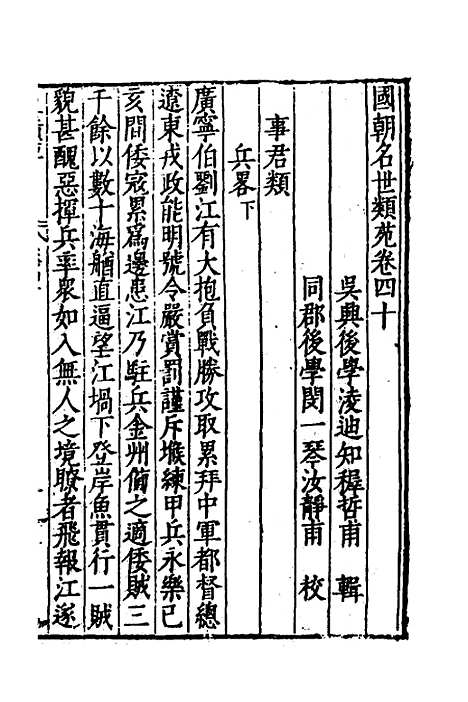 國朝名世類苑卷四十
吳興後學凌迪知穉哲甫 輯
同郡後學閔一琴汝靜甫 校
事君類
兵畧下
廣寧伯劉江有大抱負戰勝攻取累拜中軍都督總
遼東戎政能明號令嚴賞罰謹斥堠練甲兵永樂己
亥間倭寇累爲邊患江乃駐兵金州備之適倭賊三
千餘以數十海艏直逼望江堝下登岸魚貫行一賊
貌甚醜惡揮兵率衆如入無人之境瞭者飛報江遂